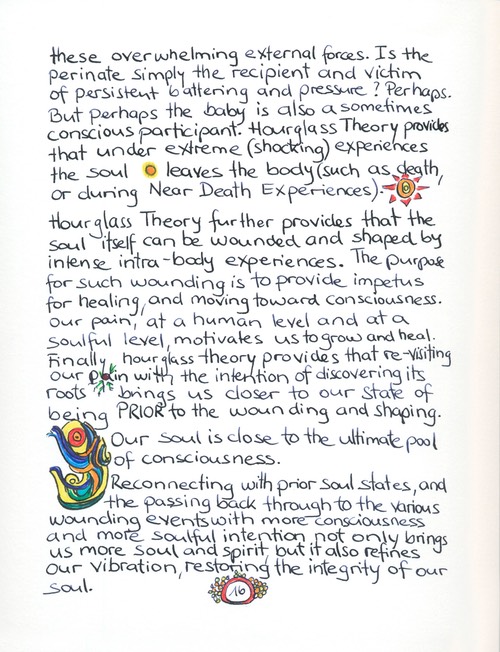 these overwhelming external forces. Is the
perinate simply the recipient and victim
of persistent battering and pressure? Perhaps.
But perhaps the baby is also a sometimes
conscious participant. Hourglass Theory provides
that under extreme (shocking) experiences
the soul leaves the body (such as death,
or during Near Death Experiences).
Hourglass Theory further provides that the
soul itself can be wounded and shaped by
intense intra-body experiences. The purpose
for such wounding is to provide impetus
for healing, and moving toward consciousness.
Our pain, at a human level and at a
soulful level, motivates us to grow and heal.
Finally, hourglass theory provides that re-visiting
our pain with the intention of discovering its
roots brings us closer to our state of
being PRIOR to the wounding and shaping.
Our soul is close to the ultimate pool
of consciousness.
Reconnecting with prior soul states, and
the passing back through to the various
wounding events with more consciousness
and more soulful intention not only brings
us more soul and spirit, but it also refines
our vibration, restoring the integrity of our
soul.
16